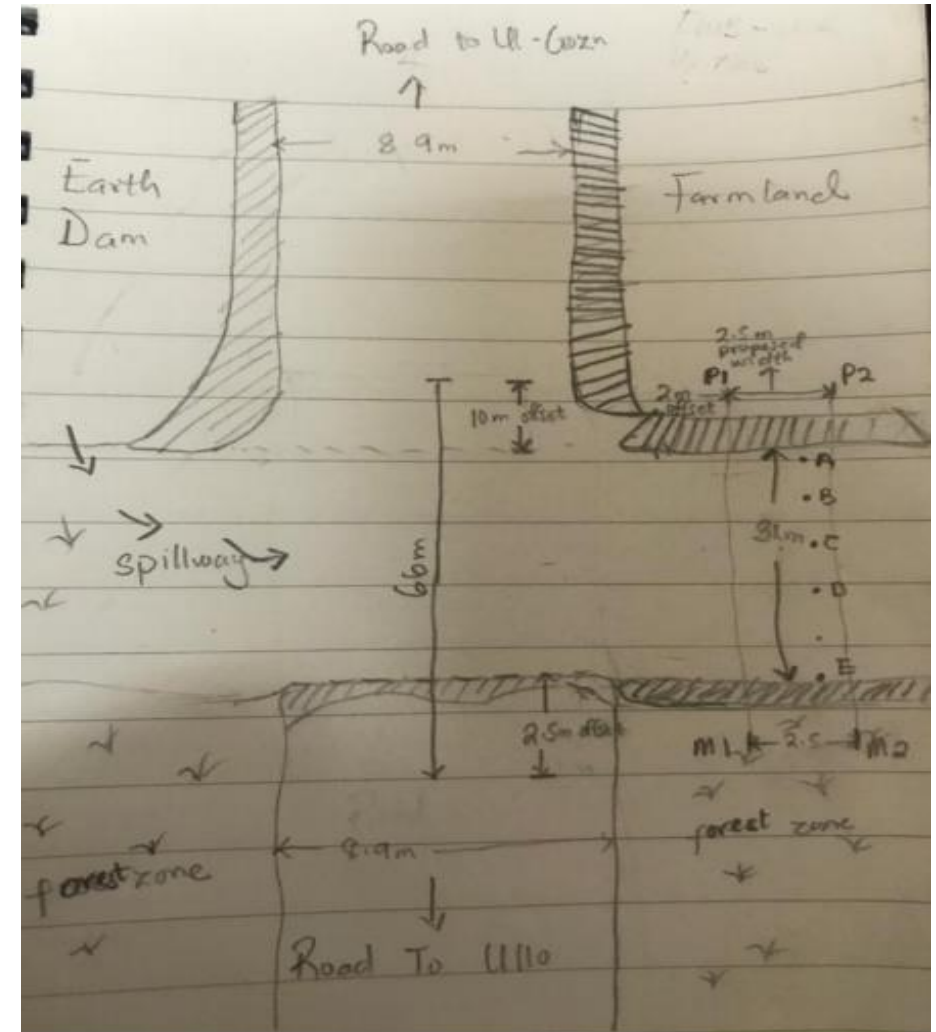 Road to Ul-Gozn
8.9m
Earth
Dam
Farmland
2.5m
proposed
width
P1
P2
2m
offset
10m offset
A
B
C
D
E
spillway
66m
2.5m offset
M1
2.5
M2
forest zone
8.9m
forest zone
Road To Ullo